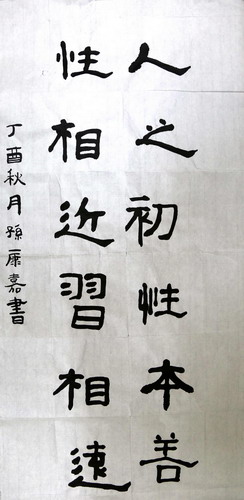 人之初性本善
性相近習相遠
丁酉秋月孫康嘉書